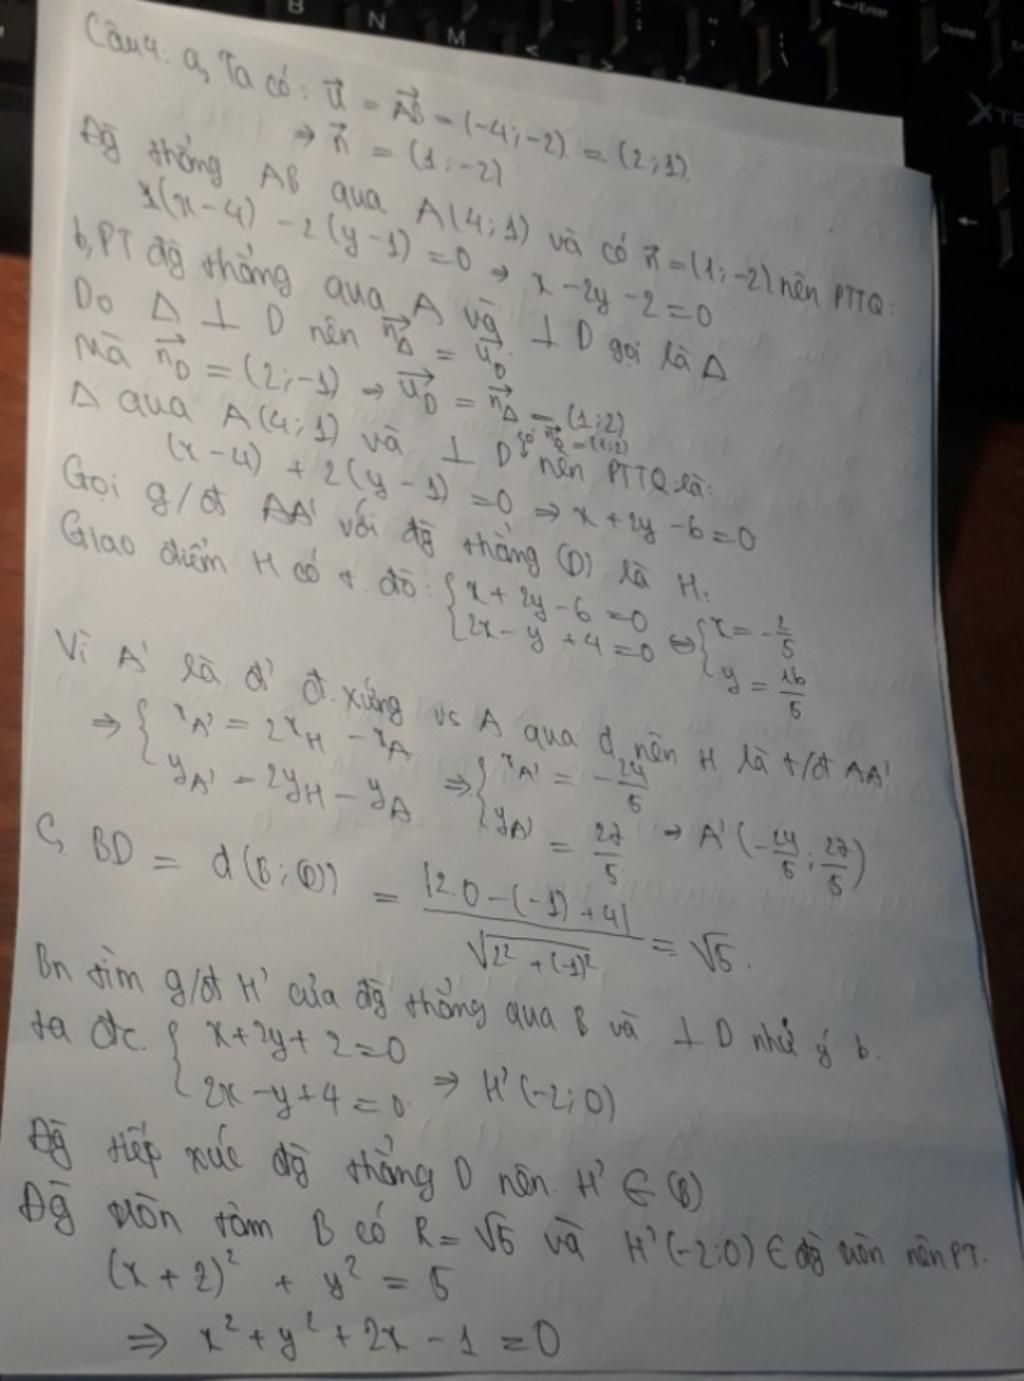 Câu 4: a, Ta có: $\vec{u} = \vec{AB} = (-4; -2) = (2; 1)$
$\Rightarrow \vec{n} = (1; -2)$
Đg thẳng AB qua A(4; 1) và có $\vec{n} = (1; -2)$ nên PTTQ:
$1(x-4) - 2(y-1) = 0 \Rightarrow x - 2y - 2 = 0$
b, PT đg thẳng qua A và ⊥ D gọi là Δ
Do Δ ⊥ D nên $\vec{n_Δ} = \vec{u_D}$
Mà $\vec{n_D} = (2; -1) \Rightarrow \vec{u_D} = \vec{n_Δ} = (1; 2)$
Δ qua A(4; 1) và ⊥ D có $\vec{n_Δ} = (1; 2)$ nên PTTQ là:
$(x-4) + 2(y-1) = 0 \Rightarrow x + 2y - 6 = 0$
Gọi g/đ AA' với đg thẳng (D) là H.
Giao điểm H có t. độ: $\begin{cases} x + 2y - 6 = 0 \\ 2x - y + 4 = 0 \end{cases} \Leftrightarrow \begin{cases} x = -\frac{2}{5} \\ y = \frac{16}{5} \end{cases}$
Vì A' là đ' đ. xứng vs A qua d nên H là t/đ AA'
$\Rightarrow \begin{cases} x_{A'} = 2x_H - x_A \\ y_{A'} = 2y_H - y_A \end{cases} \Rightarrow \begin{cases} x_{A'} = -\frac{24}{5} \\ y_{A'} = \frac{27}{5} \end{cases} \Rightarrow A'(-\frac{24}{5}; \frac{27}{5})$
C, BD = d(B; (D)) $= \frac{|2.0 - (-1) + 4|}{\sqrt{2^2 + (-1)^2}} = \sqrt{5}.$
Bn tìm g/đ H' của đg thẳng qua B và ⊥ D như ý b.
ta đc $\begin{cases} x + 2y + 2 = 0 \\ 2x - y + 4 = 0 \end{cases} \Rightarrow H'(-2; 0)$
Đg tiếp xúc đg thẳng D nên H' ∈ (B)
Đg tròn tâm B có R = $\sqrt{5}$ và H'(-2; 0) ∈ đg tròn nên PT.
$(x+2)^2 + y^2 = 5$
$\Rightarrow x^2 + y^2 + 2x - 1 = 0$
B N M < >
Enter
Delete
XTE